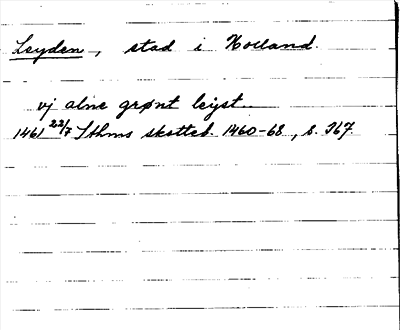 Leyden, stad i Holland.
vj alne grønt leyst
1461 22/7 Sthms skotteb. 1460-68, s. 767.